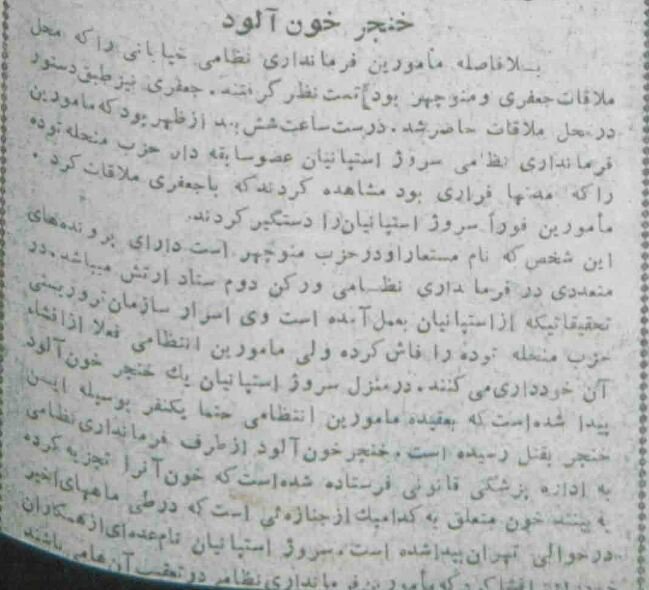 خنجر خون آلود
بــلافاصله مأمورین فرمانداری نظامی خیابانی را که محل
ملاقات جعفری و منوچهر بود تحت نظر گرفتند. جعفری نیز طبق دستور
در محل ملاقات حاضر شد. درست ساعت شش بعد از ظهر بود که مامورین
فرمانداری نظامی سروژ استپانیان عضو سابقه دار حزب منحله توده
را که مدتها فراری بود مشاهده کردند که با جعفری ملاقات کرد.
مأمورین فوراً سروژ استپانیان را دستگیر کردند.
این شخص که نام مستعار او در حزب منوچهر است دارای پرونده‌های
متعددی در فرمانداری نظــامی و رکن دوم ستاد ارتش میباشد. در
تحقیقاتیکه از استپانیان بعمل آمده است وی اسرار سازمان تروریستی
حزب منحله توده را فاش کرده ولی مامورین انتظامی فعلا از افشاء
آن خودداری می کنند. در منزل سروژ استپانیان یك خنجر خون آلود
پیدا شده است که بعقیده مامورین انتظامی حتما یکنفر بوسیله ایــن
خنجر بقتل رسیده است. خنجر خون آلود از طرف فرمانداری نظامی
به اداره پزشکی قانونی فرستاده شده است که خون آنرا تجزیه کرده
به بینند خون متعلق به کدامیك از جنازه‌ئی است که در طی ماههای اخیر
در حوالی تهران پیدا شده است. سروژ استپانیان نام عده‌ای از همکاران
افشا کرد که مأمورین فرمانداری نظامی در تعقیب آن‌ها می باشند